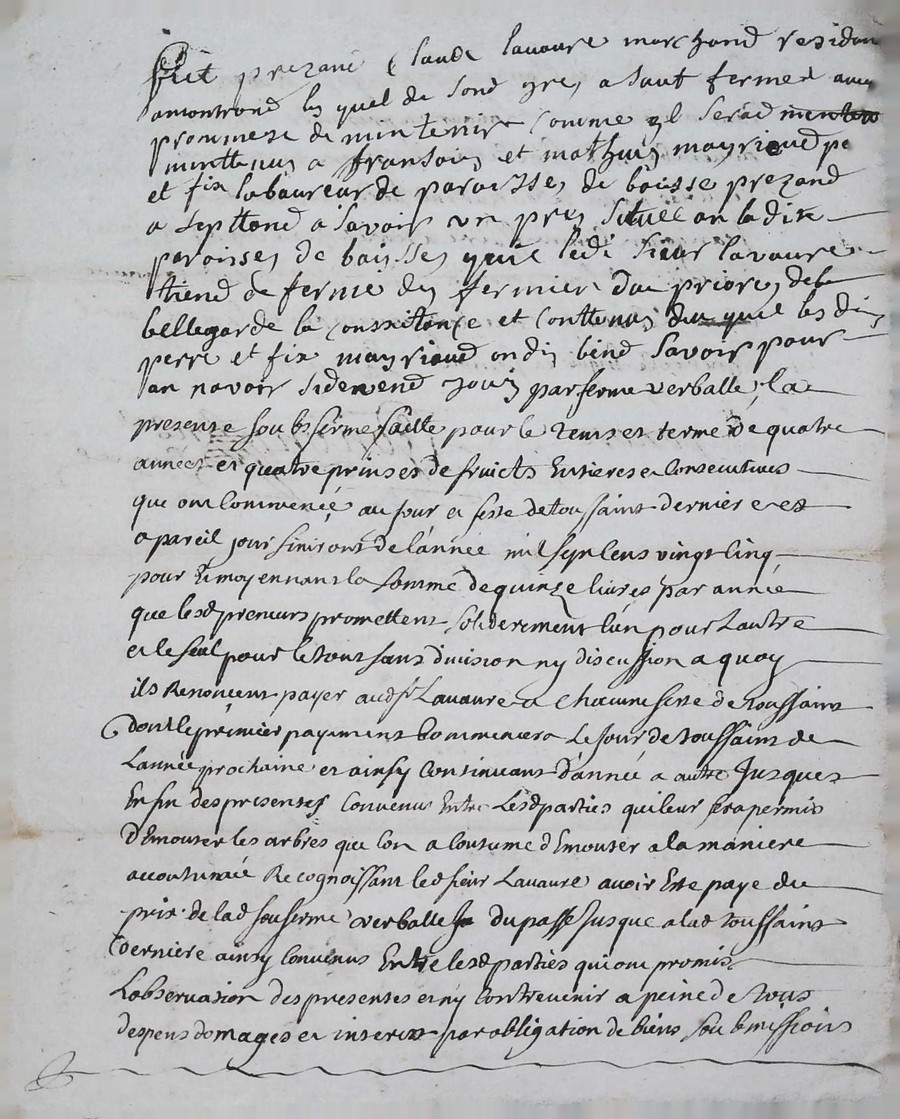 fut prezant Claude lavaure marchand residan
amontrond le quel de sond gre, a sout fermee avec
prommese de mintenir comme yl serad
mintteneu a fransois et mathieu mayrioud pe
et fix laboureur de paroisse, de boisse prezand
a septtend a savoir un pre, situee an la dix
paroisse, de baisse, que ledi sieur lavaure
tiend de ferme du fermier du priore, de
bellegarde la conssitance et conttenus du quel les di
perre et fix mayrioud on di, biend savoir pour
an navoir sidevend jouis par ferme verballe, la
presente soubsferme faitte pour le temps et terme de quatre
années et quatre prinses de fruicts Entieres et Consecutives
que ont Commencé au jour et feste de toussaint derniere et
a pareil jour finiront de l'année mil sept cens vingt cinq
pour et moyennant la somme de quinze livres par année
que lesd preneurs promettent soliderement l'un pour Lautre
et le seul pour le tout sans division ny discussion a quoy
ils Renoncent payer aud sr Lavaure a chacune feste de toussaint
dont le premier payement Commencera Le jour de toussaint de
Lannée prochaine et ainsy Continuant d'année a autre Jusques
En fin des presentes Convenu Entre Lesd parties qui leur sera permis
d'Emouter les arbres que lon a Coutume d'Emouter a la maniere
accoutumée Recognoissant led sieur Lavaure avoir Este paye du
prix de lad sousferme verballe du passe Jusque a lad toussaint
derniere ainsy Convenus Entre lesd parties qui ont promis
Lobservation des presentes et ny Contrevenir a peine de tous
despens domages et interest par obligation de biens soubmissions